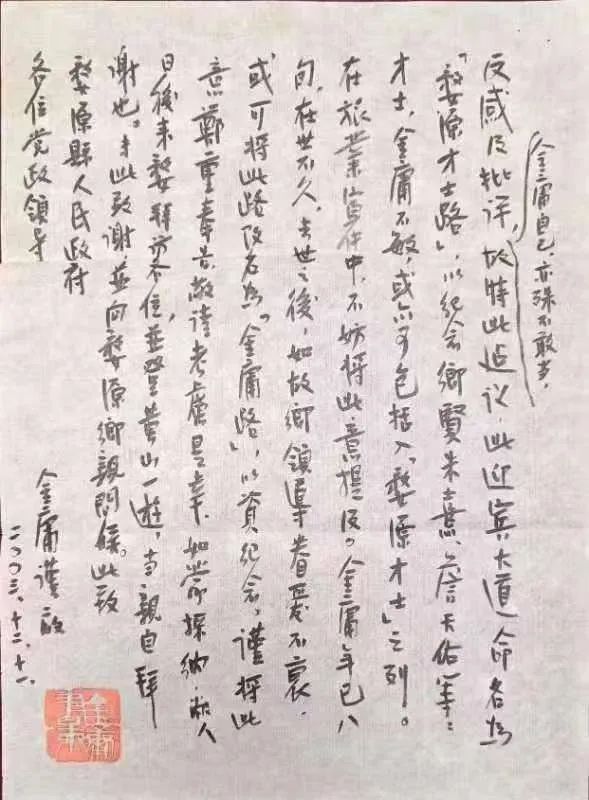 反感及批评,故特此建议,此迎宾大道命名为
金庸自己,亦殊不敢当,
「婺源才士路」,以纪念鄉賢朱熹、詹天佑等:
才士,金庸不敏,或亦可包括入「婺源才士」之列。
在旅業宣传中,不妨将此意提及。金庸年已八
旬,在世不久,去世之後,如故鄉領導眷愛不衰,
或可将此路改名為「金庸路」,以資纪念,謹将此
意鄭重奉告,敬請考慮是幸,如蒙採納,私人
日後来婺拜访各位,並登黄山一遊,当親自拜
谢也。专此致谢,並向婺源鄉親問候。此致
婺源縣人民政府
各位党政领导
金庸謹啟
二〇〇三、十二、十一